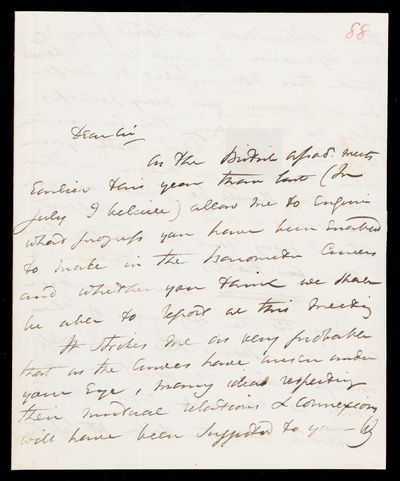 88
Dear Sir
As the British Assoc. meets
Earlier this year than last (in
July I believe) allow me to Enquire
what progress you have been Enabled
to make in the barometric Curves
and whether you think we shall
be able to report at this Meeting
It strikes me as very probable
that as the Curves have arisen under
your Eye, many ideas respecting
their mutual relations & connexions
will have been suggested to you —